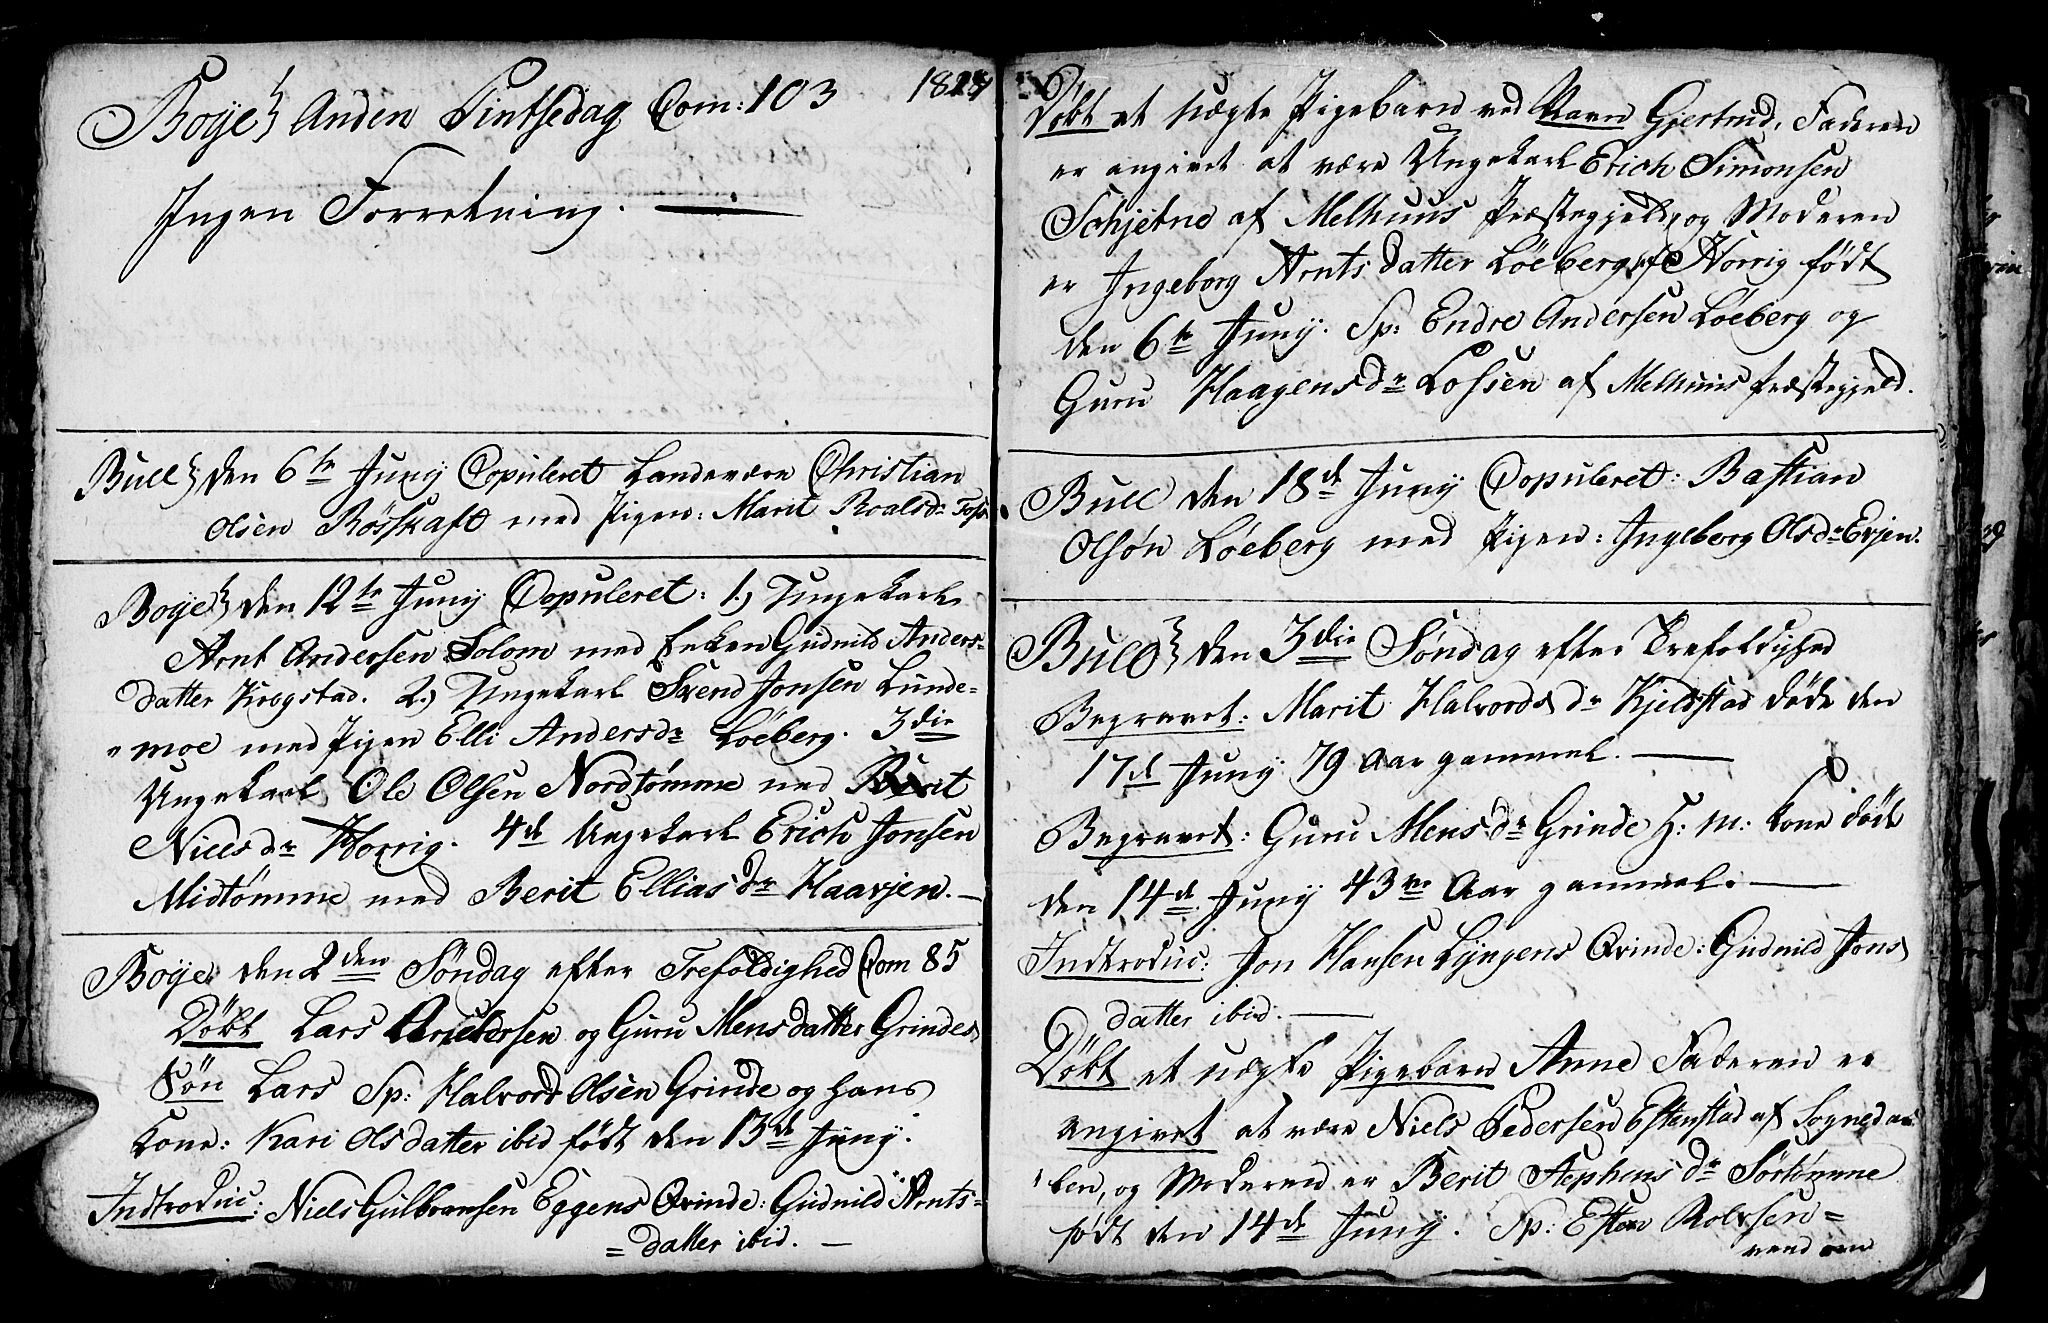 Boye} Anden Pintsedag Com: 103 1824
Ingen Forretning.
Bull} den 6te Juny Copuleret Landeværn Christian
Olsen Rösskaft med Pigen: Marit Roalsdr
Boye} den 12te Juny Copuleret: 1.) Ungekarl
Arnt Andersen Solom med Enken Gudnild Anders-
datter Krogstad. 2.) Ungekarl Svend Jonsen Lunde-
"moe med Pigen Elli Andersdr Löeberg. 3die
Ungekarl Ole Olsen Nordtömme med Berit
Nielsdr Horrig. 4de Ungekarl Erich Jonsen
Midtömme med Berit Elliasdr Haarjen.
Boye den 2den Söndag efter Trefoldighed Com 85
Döbt Lars Andersen og Guru Mensdatter Grindes
Sön Lars Sp: Halvord Olsen Grinde og hans
Kone: Kari Olsdatter ibid født den 13de Juny.
Indtroduc: Niels Gulbransen Eggens Qvinde: Gudnild Arnts=
=datter ibid.
Döbt et uægte Pigebarn ved Navn Gjertrud, Faderen
er angivet at være Ungekarl Erich Simonsen
Schjetne af Melhuus Præstegjeld, og Moderen
er Ingeborg Arntsdatter Löeberg af Horrig født
den 6te Juny. Sp: Endre Andersen Löeberg og
Guru Haagensdr Lossen af Melhuus Præstegjeld.
Bull den 18de Juny Copuleret: Bastian
Olsön Löeberg med Pigen: Ingeborg Olsdr Evjen.
Bull} den 3die Söndag efter Trefoldighed
Begravet: Marit Halvordsdr Kjeldstad døde den
17de Juny 79 Aar gammel.
Begravet: Guru Mensdr Grinde H: M: Kone død
den 14de Juny 43 Aar gammel.
Indtroduc: Jon Hansen Lyngens Qvinde: Gudnild Jons
datter ibid.
Döbt et uægte Pigebarn Anne Faderen er
angivet at være Niels Pedersen Estenstad af
og Moderen er Berit Stephensdr Sörtömme
født den 14de Juny. Sp: Esten Rolvsen=
vend om